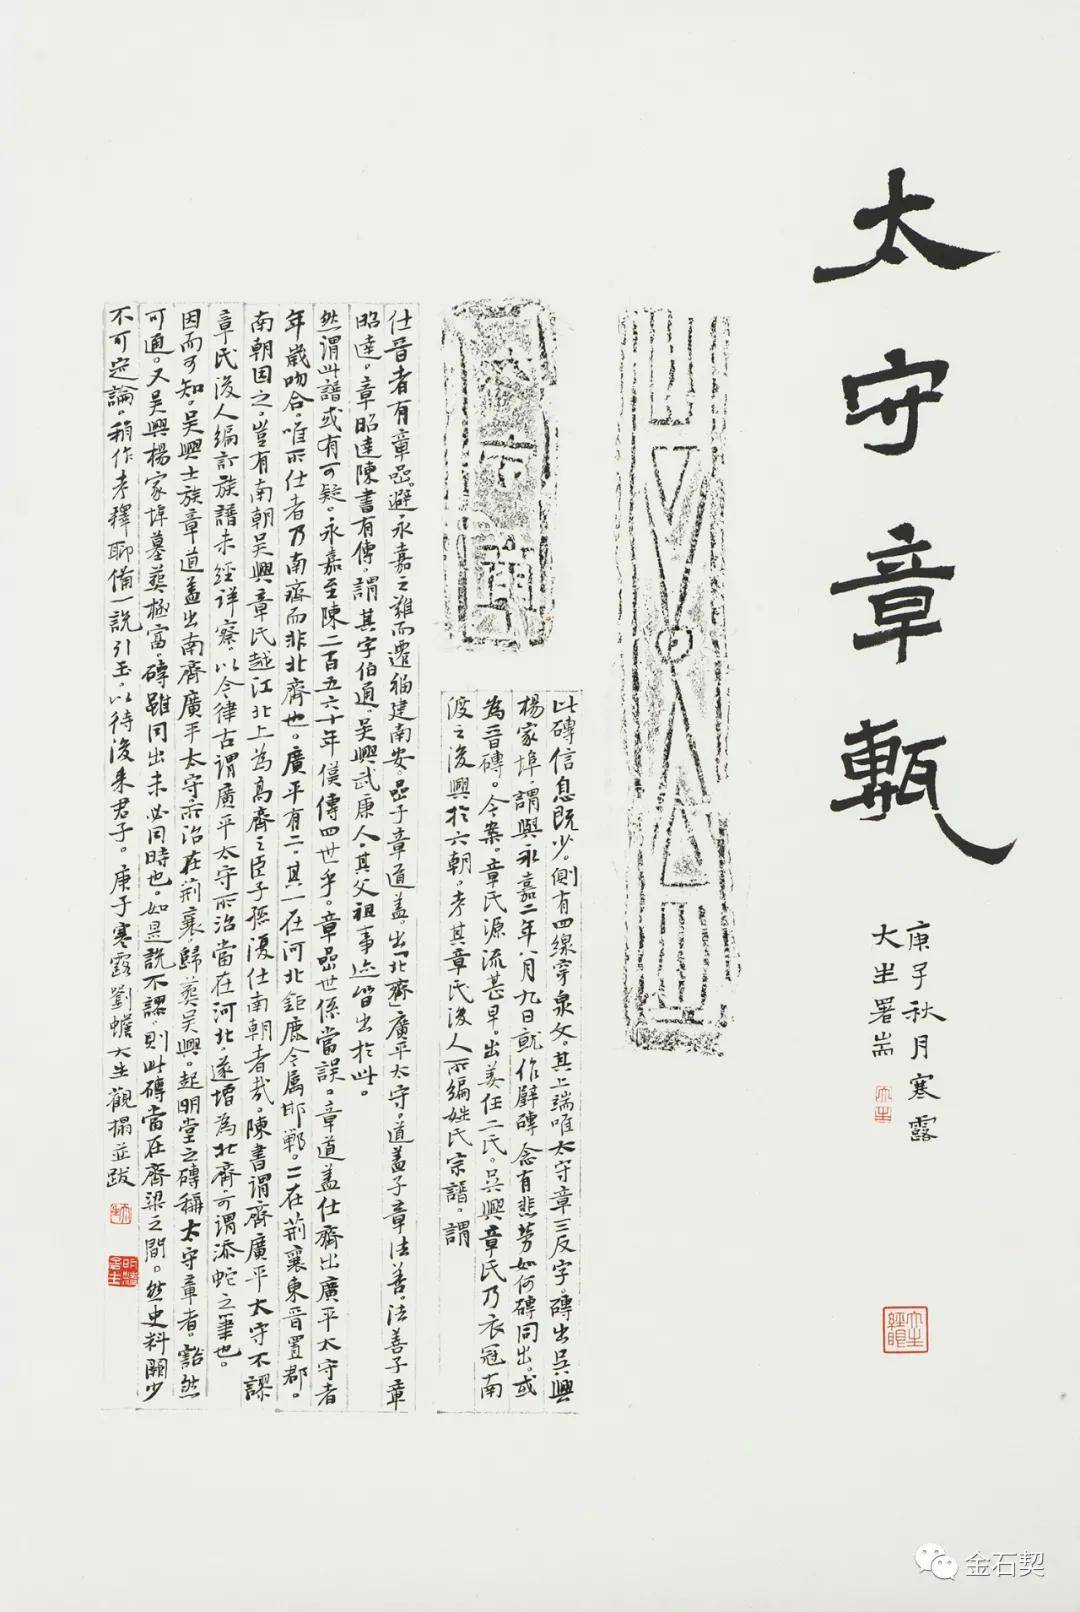 太守章甎
庚子秋月寒露
大生署耑
此磚信息既少。側有四線穿泉文。其上端唯太守章三反字。磚出吳興
楊家埠。謂與永嘉二年八月九日就作壁磚念有悲芳如何磚同出。或
為晉磚。今案。章氏源流甚早。出姜任二氏。吳興章氏乃衣冠南
渡之後興於六朝。考其章氏後人所編姓氏宗譜。謂
仕晉者有章嵒。避永嘉之難而遷福建南安。嵒子章道蓋。出「北齊」廣平太守。道蓋子章法善。法善子章
昭達。章昭達陳書有傳。謂其字伯通。吳興武康人。其父祖事迹皆出於此。
然謂此譜或有可疑。永嘉至陳二百五六十年僅傳四世乎。章嵒世係當誤。章道蓋仕齊出廣平太守者
年歲吻合。唯所仕者乃南齊而非北齊也。廣平有二。其一在河北鉅鹿今屬邯鄲。二在荊襄東晉置郡。
南朝因之。豈有南朝吳興章氏越江北上為高齊之臣子孫復仕南朝者哉。陳書謂齊廣平太守不謬
章氏後人編訂族譜未經詳察。以今律古謂廣平太守所治當在河北。遂增為北齊。可謂添蛇之筆也。
因而可知。吳興士族章道蓋出南齊廣平太守所治在荊襄。歸葬吳興。起明堂之磚稱太守章者。豁然
可通。又吳興楊家埠墓葬極富。磚雖同出未必同時也。如是說不謬。則此磚當在齊梁之間。然史料闕少
不可定論。稍作考釋聊備一說引玉。以待後來君子。庚子寒露劉蟾大生觀搨並跋
金石契